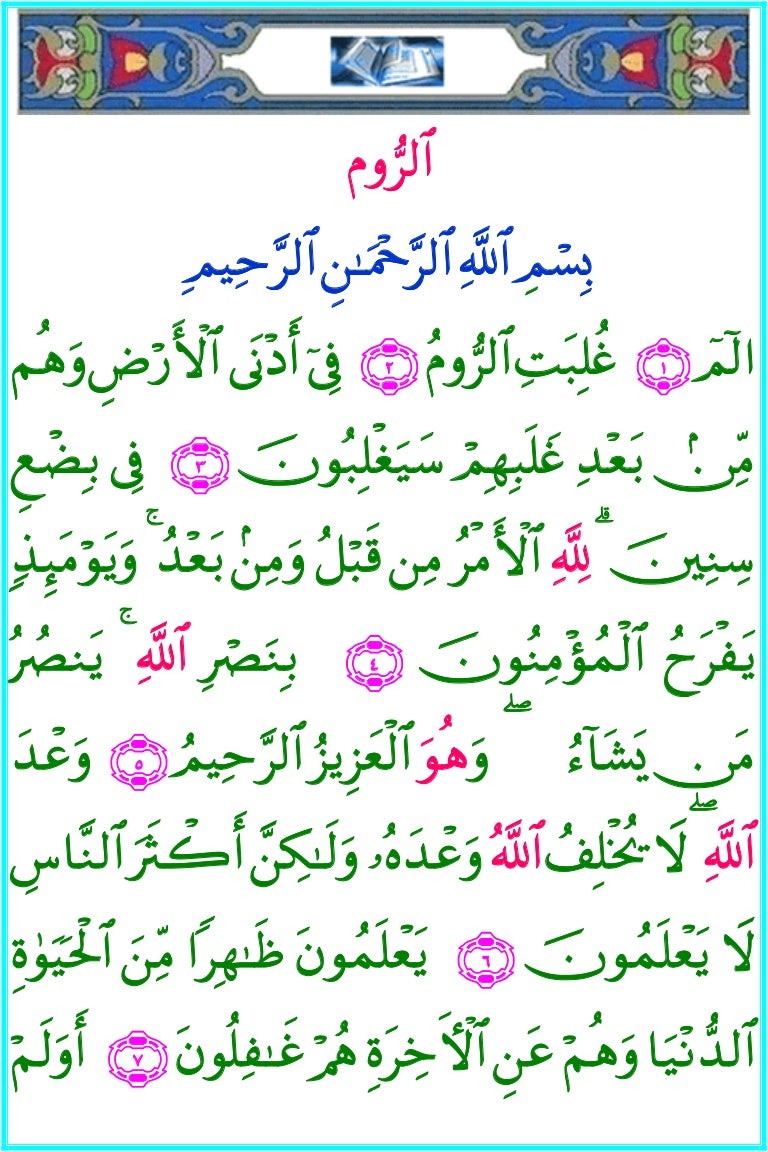 ٱلرُّوم
بِسْمِ ٱللَّهِ ٱلرَّحْمَـٰنِ ٱلرَّحِيمِ
الٓمٓ ١ غُلِبَتِ ٱلرُّومُ ٢ فِىٓ أَدْنَى ٱلْأَرْضِ وَهُم
مِّنۢ بَعْدِ غَلَبِهِمْ سَيَغْلِبُونَ ٣ فِى بِضْعِ
سِنِينَ ۗ لِلَّهِ ٱلْأَمْرُ مِن قَبْلُ وَمِنۢ بَعْدُ ۚ وَيَوْمَئِذٍ
يَفْرَحُ ٱلْمُؤْمِنُونَ ٤ بِنَصْرِ ٱللَّهِ ۚ يَنصُرُ
مَن يَشَآءُ ۖ وَهُوَ ٱلْعَزِيزُ ٱلرَّحِيمُ ٥ وَعْدَ
ٱللَّهِ ۖ لَا يُخْلِفُ ٱللَّهُ وَعْدَهُۥ وَلَـٰكِنَّ أَكْثَرَ ٱلنَّاسِ
لَا يَعْلَمُونَ ٦ يَعْلَمُونَ ظَـٰهِرًا مِّنَ ٱلْحَيَوٰةِ
ٱلدُّنْيَا وَهُمْ عَنِ ٱلْـَٔاخِرَةِ هُمْ غَـٰفِلُونَ ٧ أَوَلَمْ